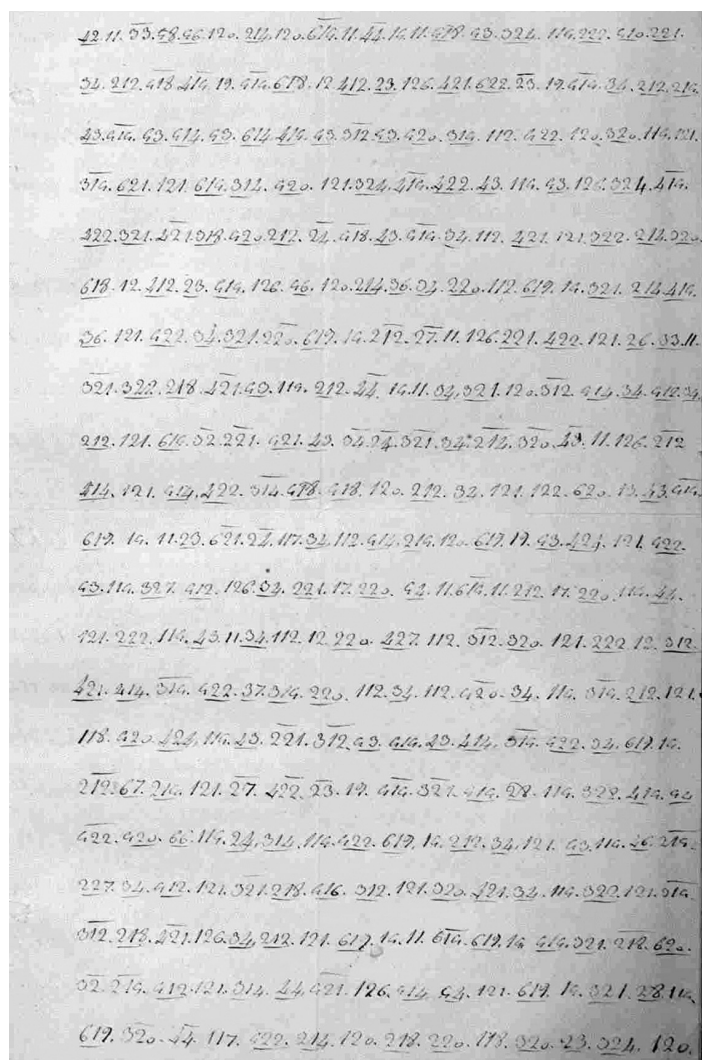 42.11.33.58.96.120.214.120.619.11.44.19.11.918.93.324.119.222.910.221.
34.212.918.419.19.919.618.12.412.23.126.421.622.23.19.919.34.212.219.
43.919.93.914.93.614.419.93.312.93.920.319.112.922.120.320.119.121.
319.621.121.619.314.920.121.324.419.422.43.119.93.126.324.419.
422.321.421.318.920.212.24.918.43.919.34.112.421.121.322.214.320.
618.12.412.23.919.126.96.120.214.36.34.220.112.619.19.321.214.419.
36.121.922.34.321.220.619.19.212.27.11.126.221.422.121.26.33.11.
321.322.218.421.93.119.212.44.19.11.34.321.120.312.914.34.912.34.
212.121.619.32.221.921.43.34.24.321.34.214.320.43.11.126.212
414.121.914.422.314.918.918.120.212.32.121.122.620.13.43.919.
619.19.11.23.621.24.117.34.112.914.219.120.619.19.93.424.121.922.
93.119.327.912.126.34.221.17.220.94.11.619.11.212.17.220.119.44.
121.222.119.43.11.34.112.12.220.427.112.312.320.121.222.12.312.
421.414.319.922.37.319.220.112.34.112.920.34.119.319.212.121.
118.920.424.119.23.221.312.93.919.23.414.319.922.34.619.19.
212.67.219.121.27.422.23.19.919.321.419.28.119.322.419.94
922.920.66.119.24.314.119.922.619.19.212.34.121.93.119.26.219.
227.34.912.121.321.218.916.312.121.320.421.34.119.322.121.319.
312.218.421.126.34.212.121.619.19.11.619.619.19.919.321.218.620.
32.219.912.121.314.44.921.126.914.94.121.619.19.321.28.119.
619.320.44.117.922.214.120.218.220.118.320.23.324.120.